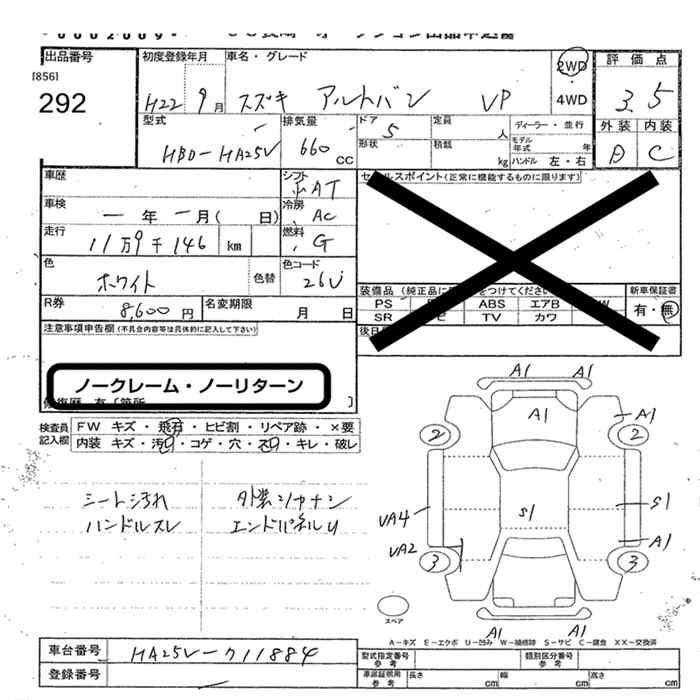 0002009
出品番号 初度登録年月 車名・グレード 2WD 評価点
[856]
292
H22 9月 スズキ アルトバン VP 4WD 3.5
型式 排気量 ドア 定員 ディーラー・並行 外装 内装
HBD-HA25V 660 CC 5 人 モデル年式 年
形状 積載 kg ハンドル 左・右 D C
車歴 シフト セールスポイント(正常に機能するものに限ります)
AT
車検 冷房
一年 一月( 日) AC
走行 燃料
11万9千146 km G
色 色替 色コード
ホワイト 26U
装備品 (純正品に をつけてください 新車保証書
PS ABS エアB W 有・無
SR TV カワ
R券 8,600円 名変期限 月 日
後日
注意事項申告欄(不具合内容等は具体的に記入して下さい)
ノークレーム・ノーリターン
修復歴 有[箇所 ]
検査員記入欄 FW キズ・飛石・ヒビ割・リペア跡・×要
内装 キズ・汚れ・コゲ・穴・スレ・キレ・破レ
シート汚れ 外装シカナン
ハンドルスレ エンドパネルU
A1 A1
A1 A1
2 2
S1 S1
VA4
VA2 A1
3 3
スペア
A1 A1
A-キズ E-エクボ U-凹み W-補修跡 S-サビ C-腐食 XX-交換済
車台番号 HA25V-711884
登録番号
型式指定番号 参考 類別区分番号 参考
車庫証明用 参考 長さ cm 幅 cm 高さ cm